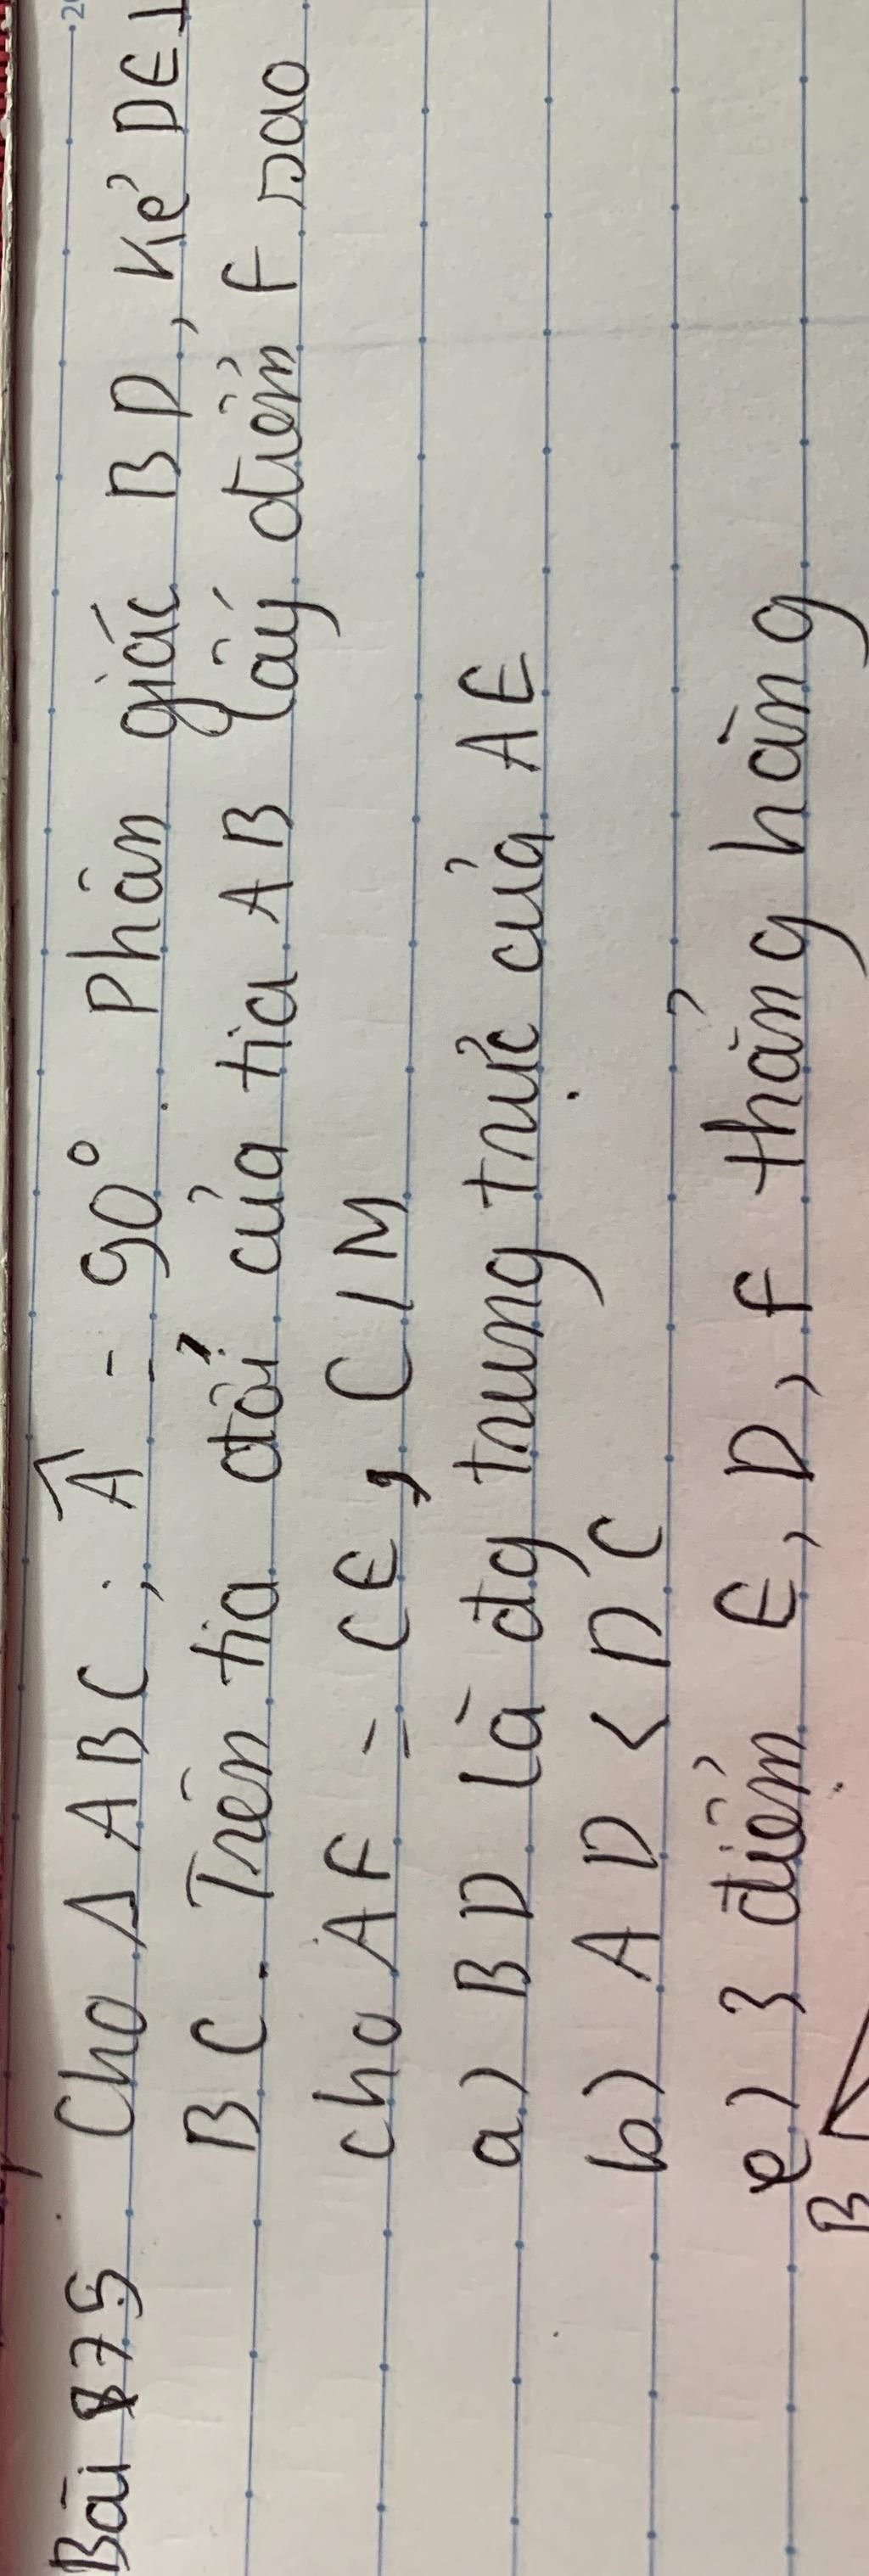 Bài 875 Cho Δ ABC; Â = 90°. Phân giác BD, kẻ DE⊥
BC. Trên tia đối của tia AB lấy điểm F sao
cho AF = CE, C/M
a) BD là đg trung trực của AE
b) AD < DC
c) 3 điểm E, D, F thẳng hàng
B